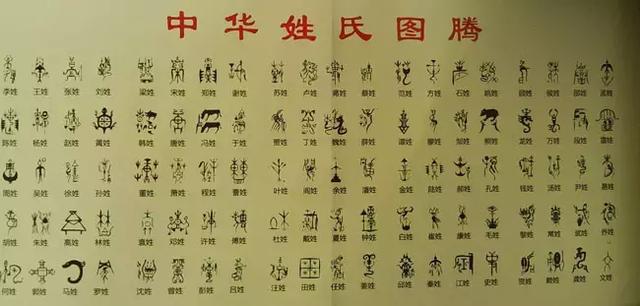 中华姓氏图腾
李姓 王姓 张姓 刘姓 梁姓 宋姓 郑姓 谢姓 苏姓 卢姓 蒋姓 蔡姓 范姓 方姓 石姓 姚姓 顾姓 侯姓 邵姓 孟姓
陈姓 杨姓 赵姓 黄姓 韩姓 唐姓 冯姓 于姓 贾姓 丁姓 魏姓 薛姓 谭姓 廖姓 邹姓 熊姓 龙姓 万姓 段姓 雷姓
周姓 吴姓 徐姓 孙姓 董姓 萧姓 程姓 曹姓 叶姓 阎姓 余姓 潘姓 金姓 陆姓 郝姓 孔姓 钱姓 汤姓 尹姓 易姓
胡姓 朱姓 高姓 林姓 袁姓 邓姓 许姓 傅姓 杜姓 戴姓 夏姓 钟姓 白姓 崔姓 康姓 毛姓 黎姓 常姓 武姓 乔姓
何姓 郭姓 马姓 罗姓 沈姓 曾姓 彭姓 吕姓 汪姓 田姓 任姓 姜姓 邱姓 秦姓 江姓 史姓 贺姓 龚姓 文姓